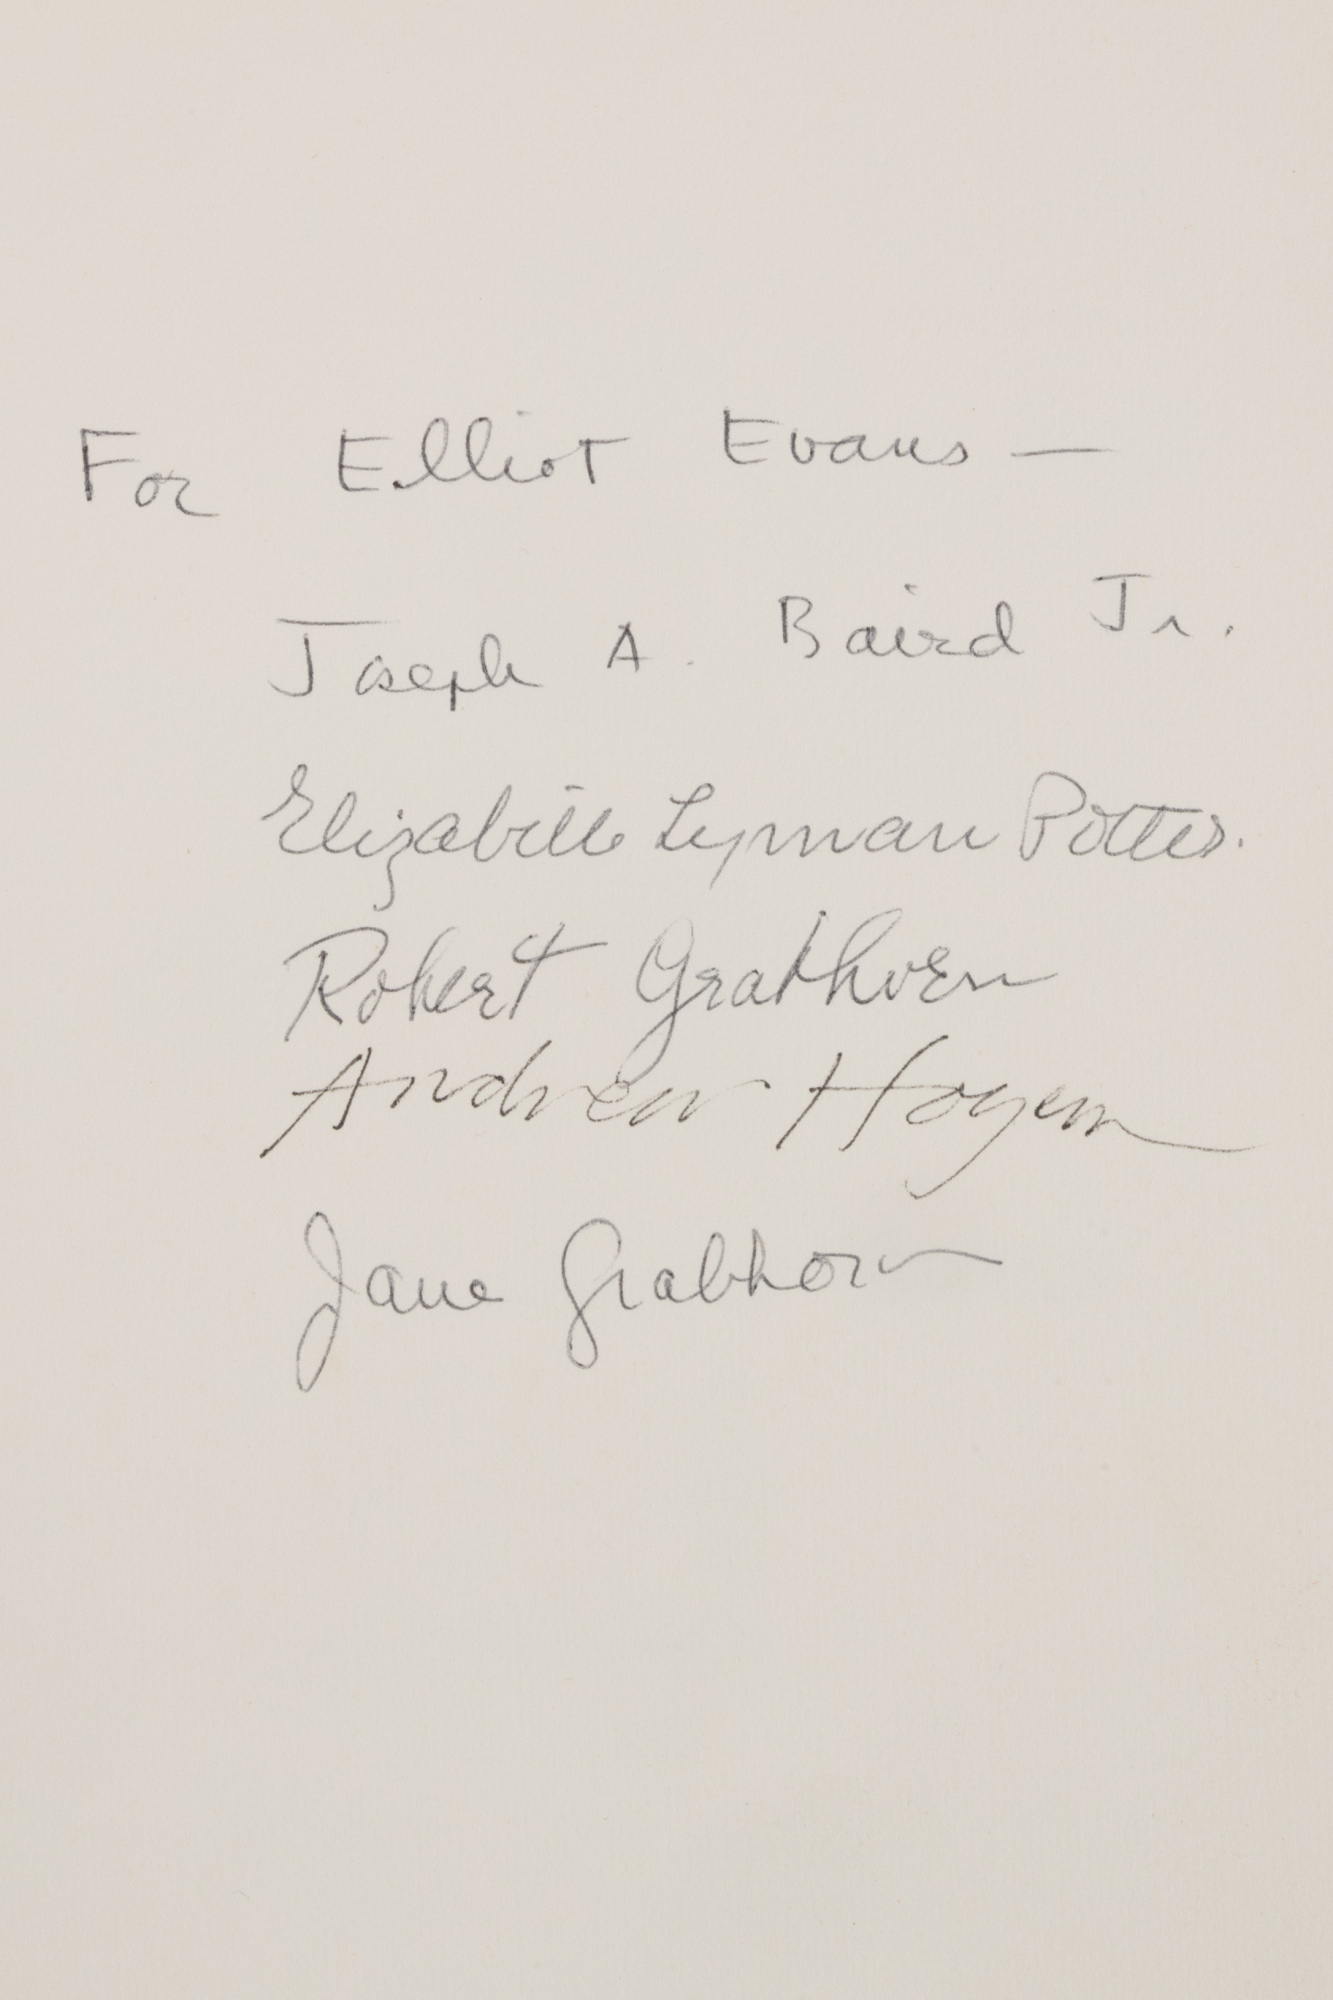 For Elliot Evans —
Joseph A. Baird Jr.
Elizabeth Lyman Potter.
Robert Grabhorn
Andrew Hoyem
Jane Grabhorn